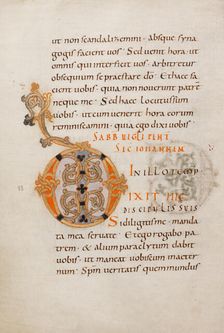 ut non scandalizemini. absque syna
gogis facient vos. Sed venit hora. ut
omnis qui interficit vos. arbitretur
obsequium se praestare do. Et haec fa
cient vobis. quia non noverunt patrem
neque me. Sed haec locutus sum
vobis. ut cum venerit hora eorum
reminiscamini. quia ego dixi vobis.
SABB
SEC IOHANNEM
IN ILLO TEMP
DIXIT IHS
DISCIPULIS SUIS
Si diligitis me. manda
ta mea servate. Et ego rogabo pa
trem. & alium paraclytum dabit
vobis. ut maneat vobiscum in aeter
num. Spm veritatis quem mundus